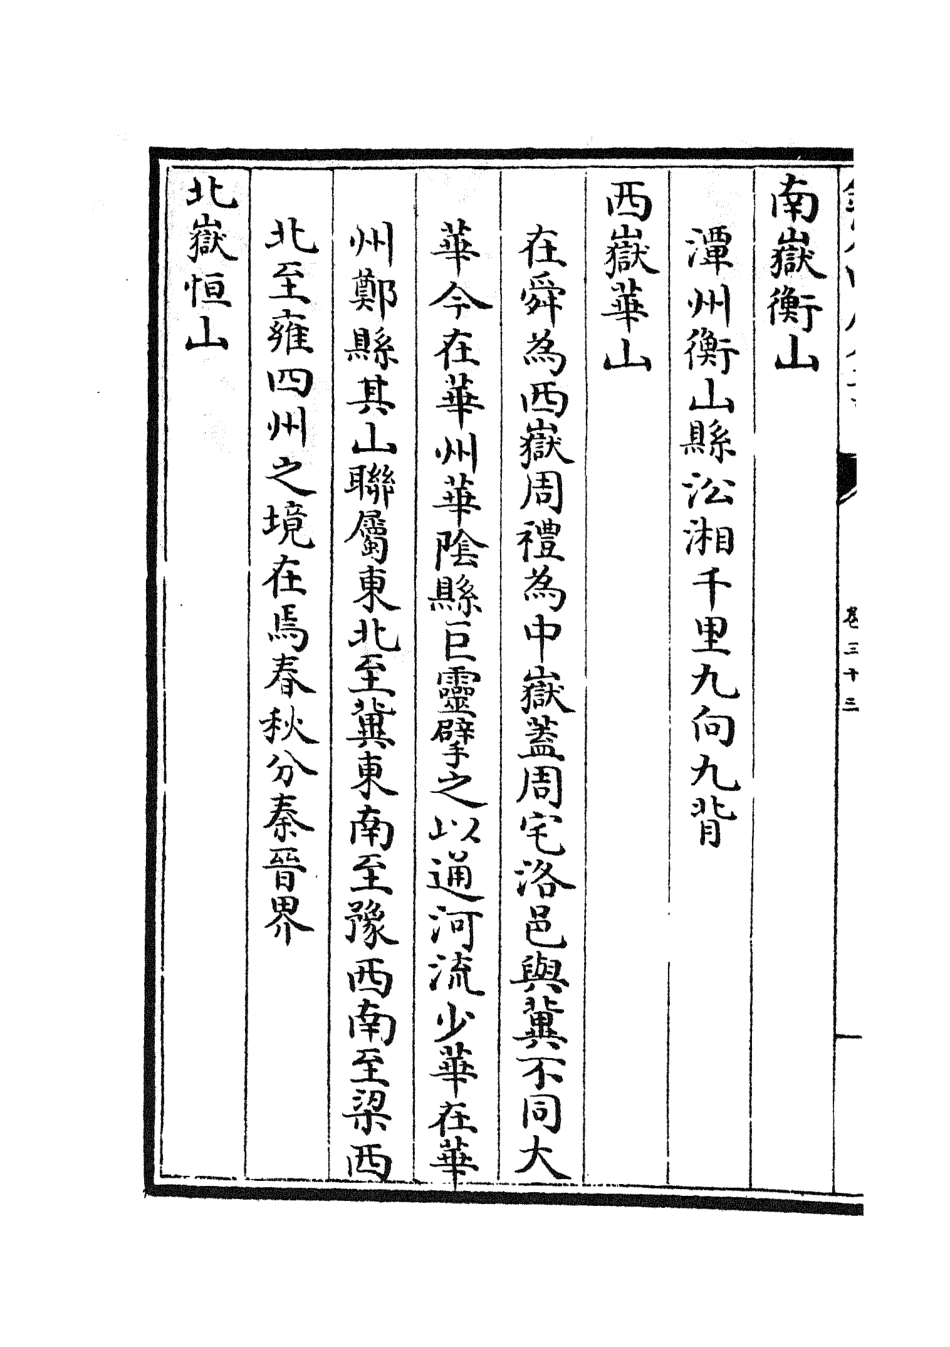 卷三十三
南嶽衡山
潭州衡山縣㳂湘千里九向九背
西嶽華山
在舜為西嶽周禮為中嶽蓋周宅洛邑與冀不同大
華今在華州華陰縣巨靈擘之以通河流少華在華
州鄭縣其山聯屬東北至冀東南至豫西南至梁西
北至雍四州之境在焉春秋分秦晉界
北嶽恒山